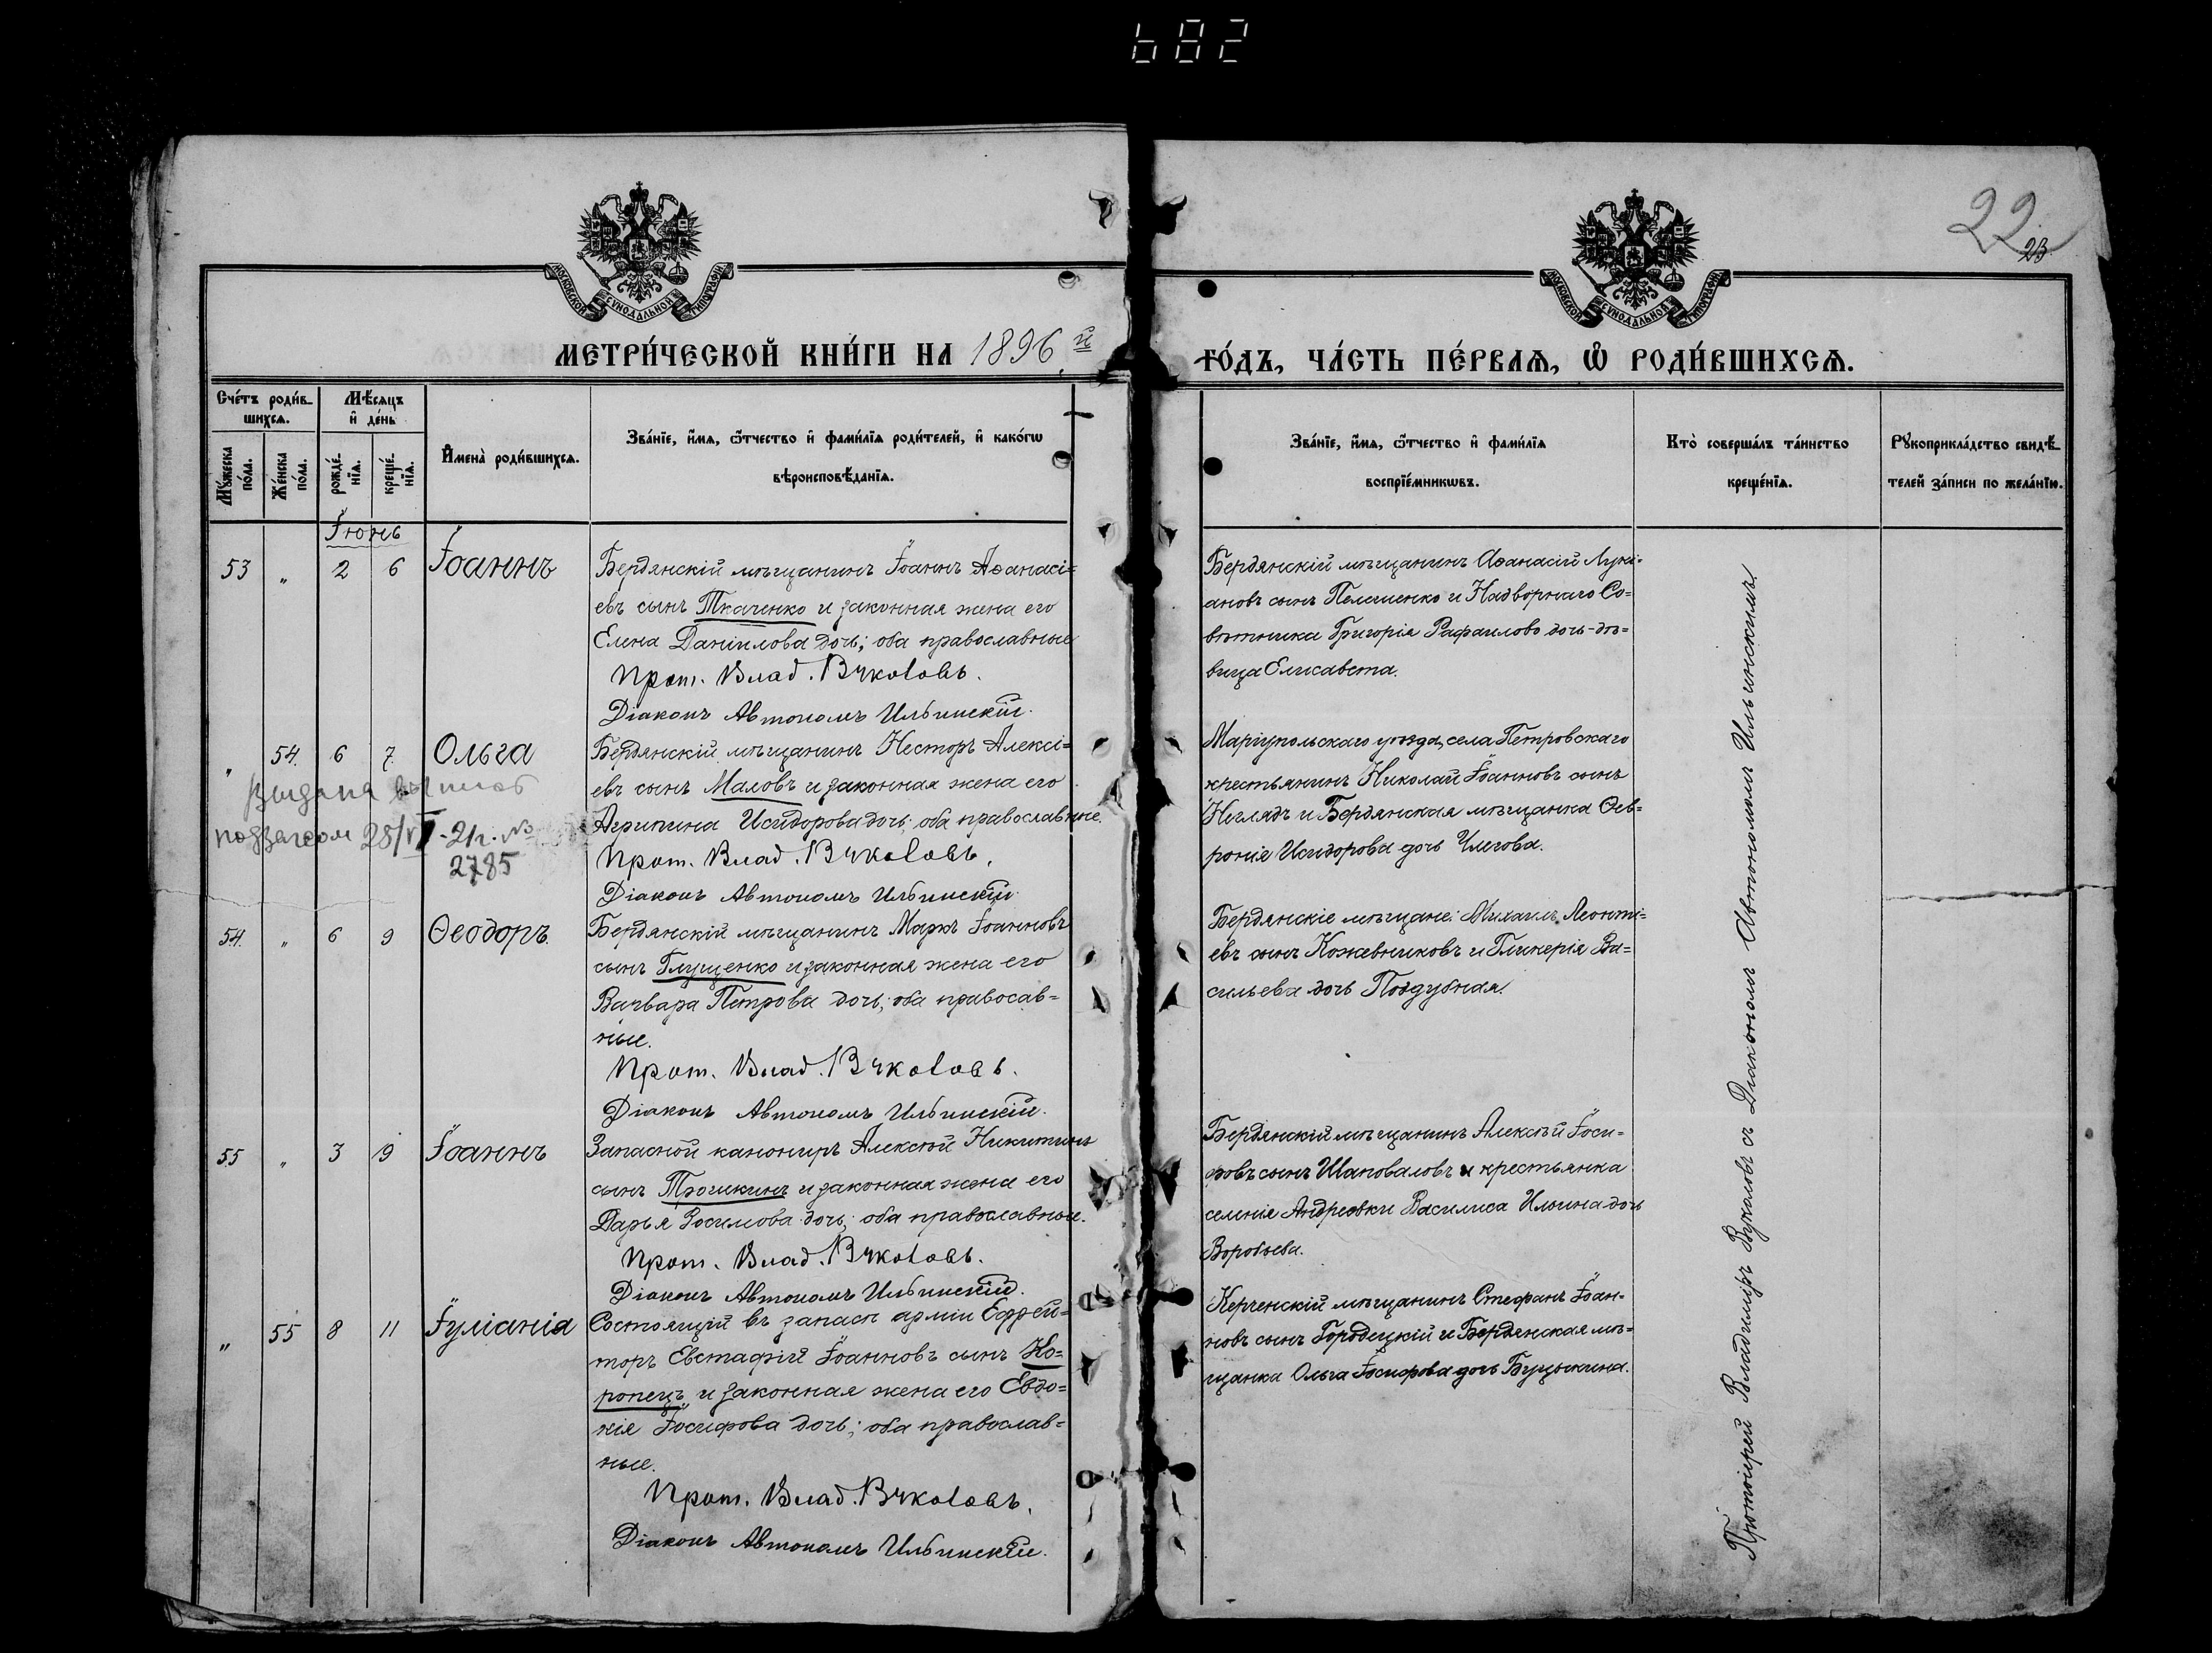 682
22
23
МОСКОВСКОЙ СѴНОДАЛЬНОЙ ТИПОГРАФІИ
МОСКОВСКОЙ СѴНОДАЛЬНОЙ ТИПОГРАФІИ
МЕТРИ́ЧЕСКОЙ КНИ́ГИ НА 1896й ГО́ДЪ, ЧА́СТЬ ПЕ́РВАѦ, Ѡ҆ РОДИ́ВШИХСѦ.
Сче́тъ роди́в-
шихсѧ.
Мꙋ́жеска по́ла.
Же́нска по́ла.
Мѣ́сѧцъ
и҆ де́нь
рожде́-
нїѧ.
креще́-
нїѧ.
И҆мена̀ роди́вшихсѧ.
Зва́нїе, и҆́мѧ, ѻ҆́тчество и҆ фами́лїѧ роди́телей, и҆ како́гѡ
вѣроисповѣ́данїѧ.
Зва́нїе, и҆́мѧ, ѻ҆́тчество и҆ фами́лїѧ
воспрїе́мникѡвъ.
Кто̀ соверша́лъ та́инство
креще́нїѧ.
Рꙋкоприкла́дство свидѣ́-
телей за́писи по жела́нїю.
Іюнь
53 „ 2 6 Іоаннъ
Бердянскій мѣщанинъ Іоаннъ Аѳанасі=
евъ сынъ Ткаченко и законная жена его
Елена Даніилова дочь; оба православные
Прот. Влад. Вуколовъ.
Діаконъ Автономъ Ильинскій.
Бердянскій мѣщанинъ Аѳанасій Лукі-
ановъ сынъ и Надворнаго Со=
вѣтника Григорія дочь-дѣ=
вица Елисавета.
„ 54. 6 7. Ольга
Бердянскій мѣщанинъ Несторъ Алексі=
евъ сынъ Маловъ и законная жена его
Агрипина Исидорова дочь; оба православные.
Прот. Влад. Вуколовъ.
Діаконъ Автономъ Ильинскій
Выдана
28/VI-21г. №
2785
Маріупольскаго уѣзда, села Петровскаго
крестьянинъ Николай Іоанновъ сынъ
Неглядъ и Бердянская мѣщанка Ѳев-
ронія Исидорова дочь
54. „ 6 9 Ѳеодоръ.
Бердянскій мѣщанинъ Маркъ Іоанновъ
сынъ Глущенко и законная жена его
Варвара Петрова дочь; оба правосав=
ные.
Прот. Влад. Вуколовъ.
Діаконъ Автономъ Ильинскій.
Бердянскіе мѣщане: Михаилъ Леонті=
евъ сынъ Кожевниковъ и Гликерія Ва=
сильева дочь Поддубная.
55 „ 3 9 Іоаннъ
Запасной канониръ Алексѣй Никитинъ
сынъ Трошкинъ и законная жена его
Дарья Зосимова дочь; оба православные.
Прот. Влад. Вуколовъ.
Діаконъ Автономъ Ильинскій.
Бердянскій мѣщанинъ Алексѣй Іоси-
фовъ сынъ Шаповаловъ и крестьянка
селенія Андреевки Василиса Ильина дочь
Воробьева.
„ 55 8 11 Іуліанія
Состоящій въ запасѣ арміи Ефрей=
торъ Евстафій Іоанновъ сынъ Ко=
ропецъ и законная жена его Евдо=
кія Іосифова дочь; оба православ=
ные.
Прот. Влад. Вуколовъ.
Діаконъ Автономъ Ильинскій.
Керченскій мѣщанинъ Стефанъ Іоан-
новъ сынъ Городецкій и Бердянская мѣ=
щанка Ольга Іосифова дочь Буцыкина.
Протоіерей Владиміръ Вукаловъ съ Діакономъ Автономомъ Ильинскимъ.